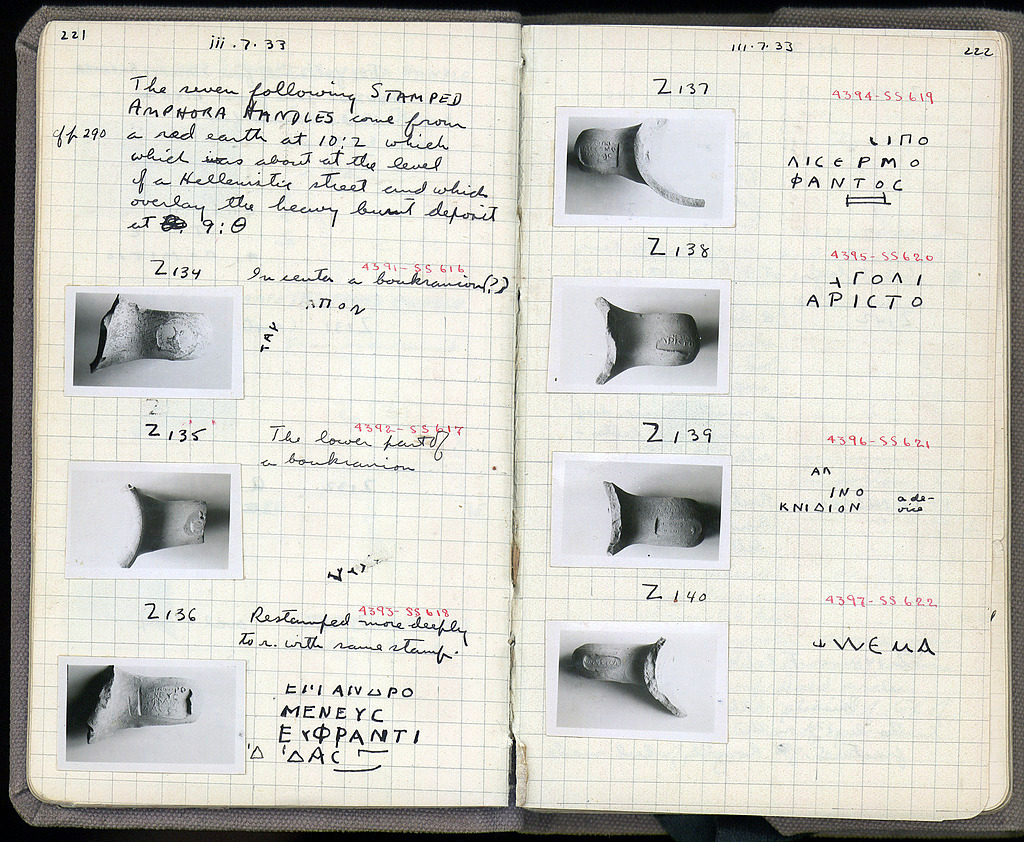 221
iii.7.33
The seven following STAMPED
AMPHORA HANDLES come from
a red earth at 10:2 which
which was about at the level
of a Hellenistic street and which
overlay the heavy burnt deposit
at 9:Θ
290
Z134
4391-SS616
In center a boukranion(?)
ΑΠΟΛ
ΤΑΥ
Z135
4392-SS617
The lower part of
a boukranion
Z136
4393-SS618
Restamped more deeply
to r. with same stamp.
ΕΠΙ ΑΝΔΡΟ
ΜΕΝΕΥC
ΕΥΦΡΑΝΤΙ
ΔΑC
222
111.7.33
Z137
4394-SS619
ΙΠΟ
ΛΙCΕΡΜΟ
ΦΑΝΤΟC
Z138
4395-SS620
ΓΟΛΙ
ΑΡΙCΤΟ
Z139
4396-SS621
ΑΠ
ΙΝΟ
ΚΝΙΔΙΟΝ
a de-
vice
Z140
4397-SS622